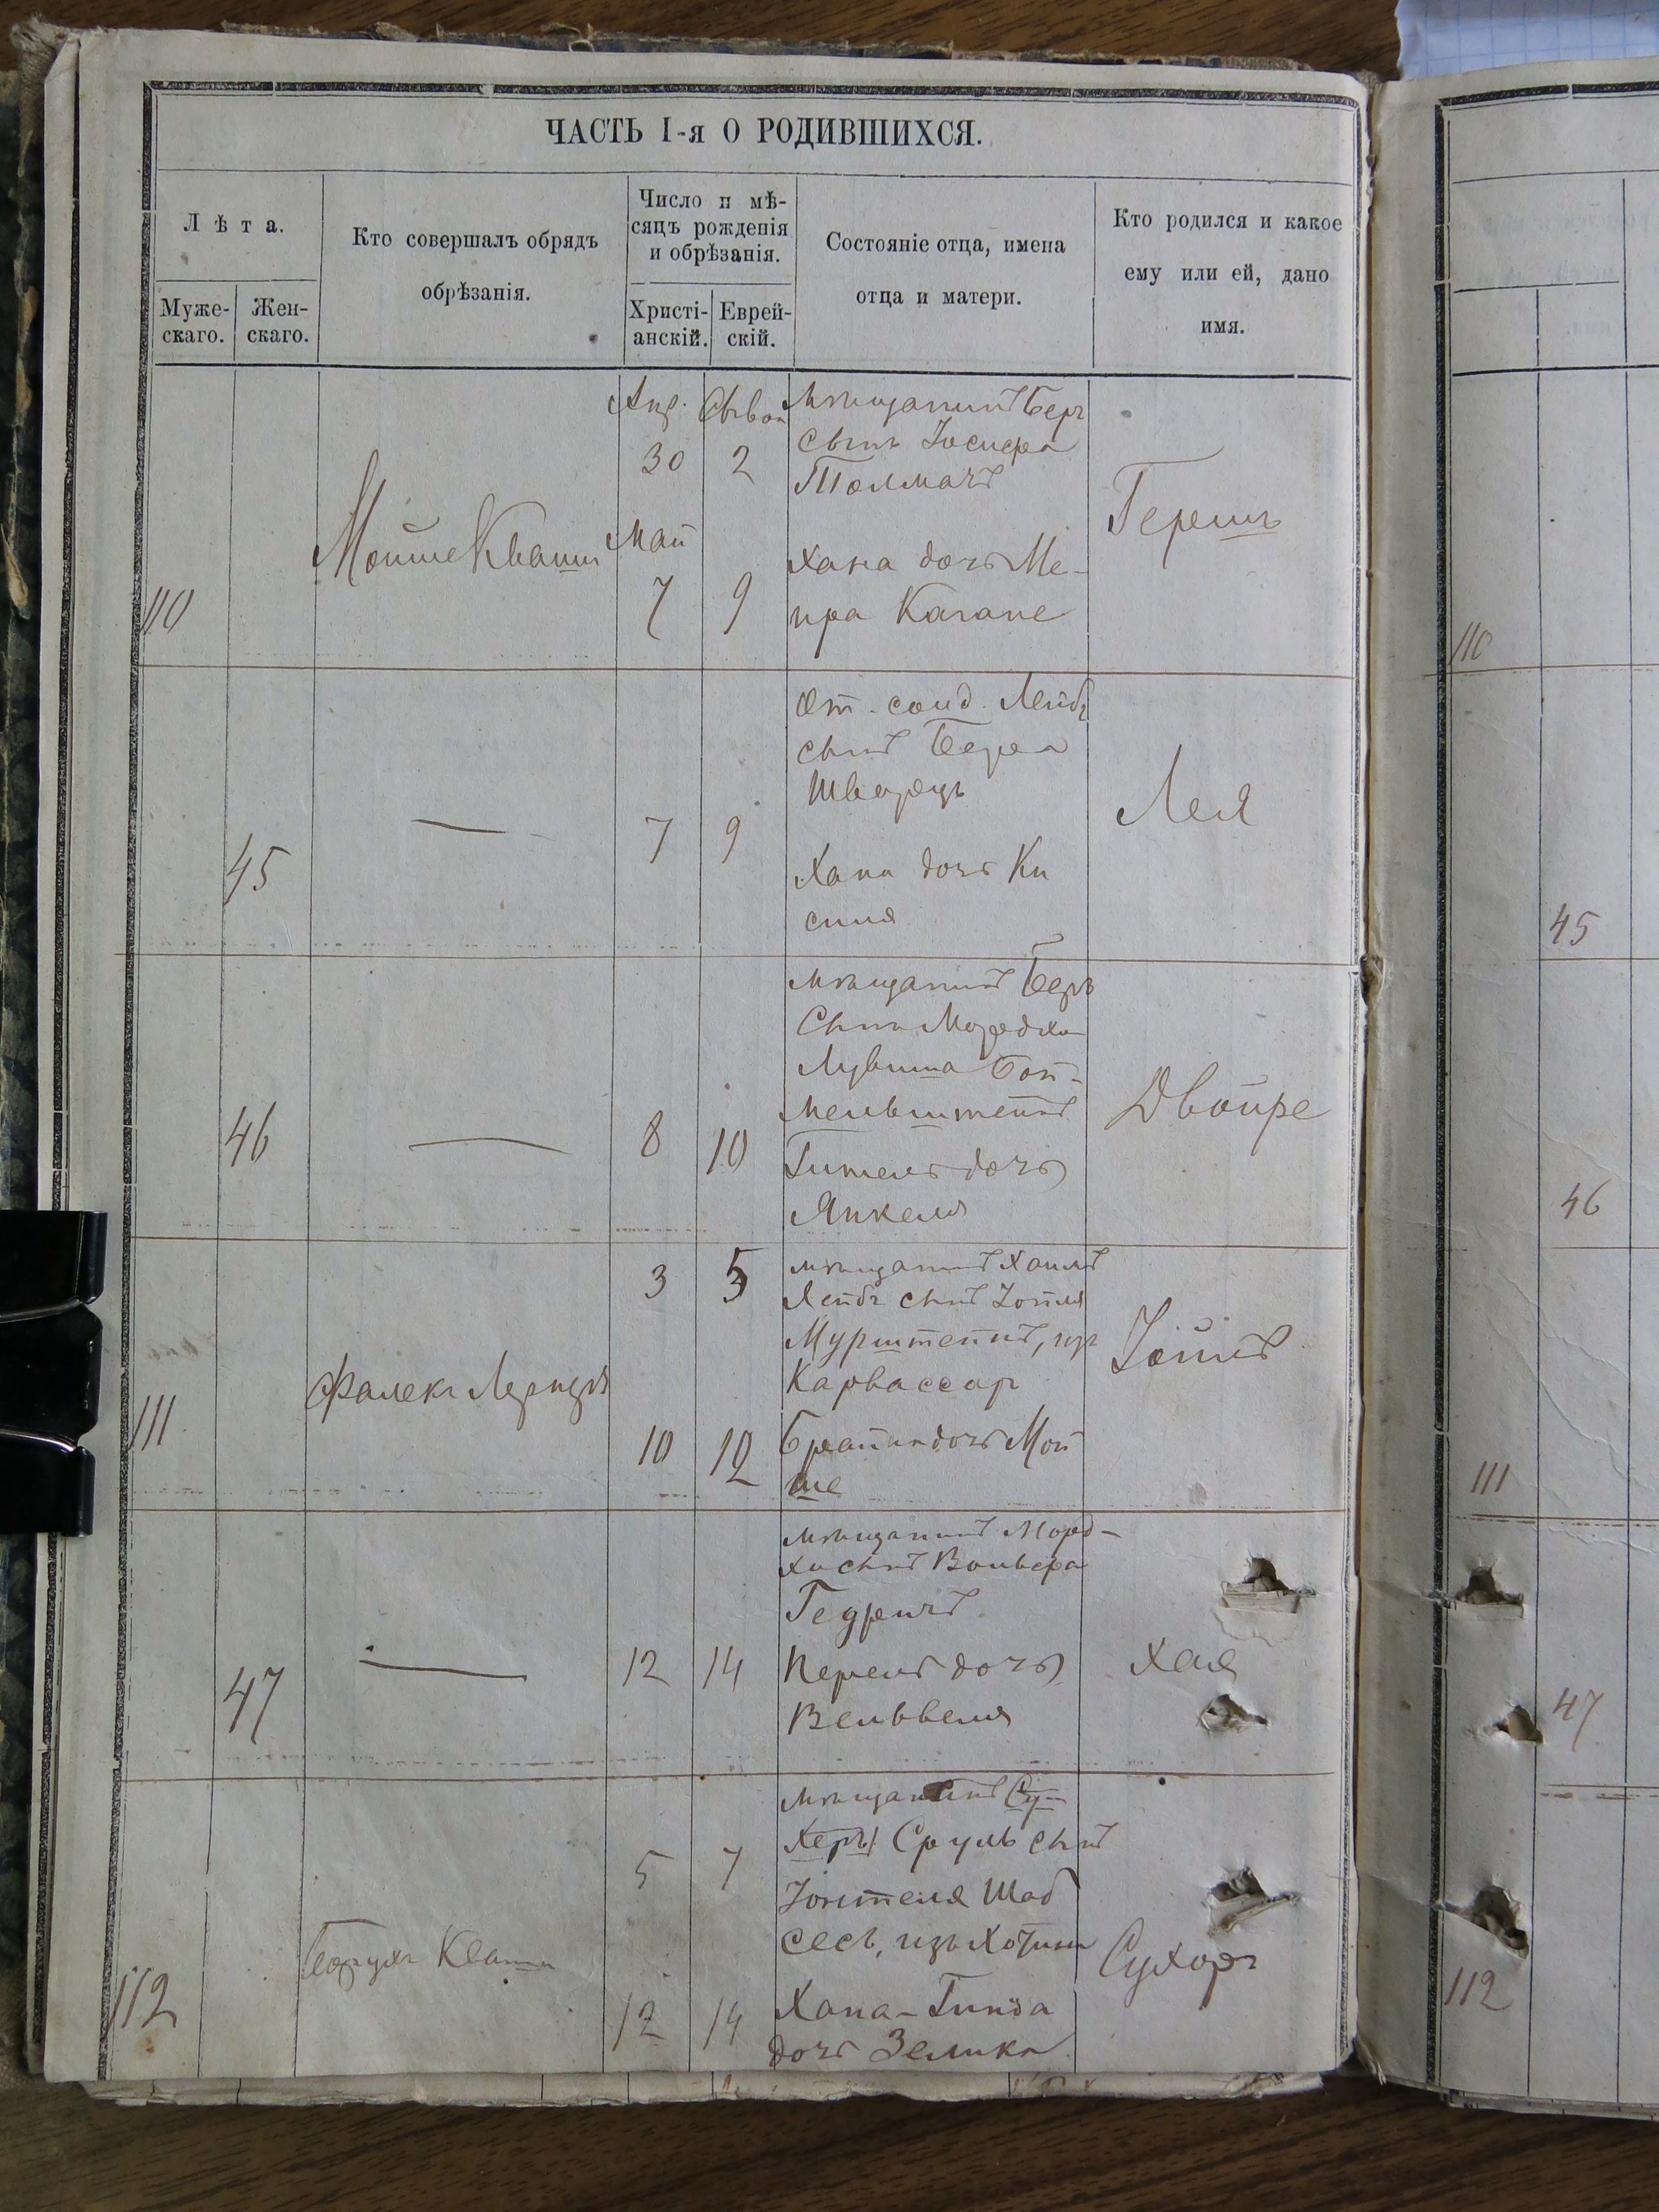 ЧАСТЬ I-я О РОДИВШИХСЯ.
Лѣта.
Муже-
скаго.
Жен-
скаго.
Кто совершалъ обрядъ
обрѣзанія.
Число и мѣ-
сяцъ рожденія
и обрѣзанія.
Христі-
анскій.
Еврей-
скій.
Состояніе отца, имена
отца и матери.
Кто родился и какое
ему или ей, дано
имя.
110
Мойше Кваши
Апр.
30
Май
7
2
9
мѣщанинъ Беръ
сынъ Іосифа
Толмачъ
Хана дочь Ме-
ира
Гершъ
45
—
7
9
От. солд. Лейбъ
сынъ Бера
Шварцъ
Хана дочь Ки
силя
Лея
46
—
8
10
мѣщанинъ Беръ
сынъ Мордха
мельштейнъ
Гитель дочь
Янкеля
Двойре
111
Фалекъ
3
10
5
12
мѣщанинъ Хаимъ
Лейбъ сынъ Іойля
Мурштейнъ, изъ
Карвассаръ
дочь Мой
ше
47
—
12
14
мѣщанинъ Морд-
хи сынъ Вольфа
Перель дочь
Вельвеля
Хая
112
5
12
7
14
мѣщанинъ Су-
херъ Сруль сынъ
Шаб
сесъ, изъ Хотина
Хана-Гинда
дочь Зелика
Сухоръ
110
45
46
111
47
112